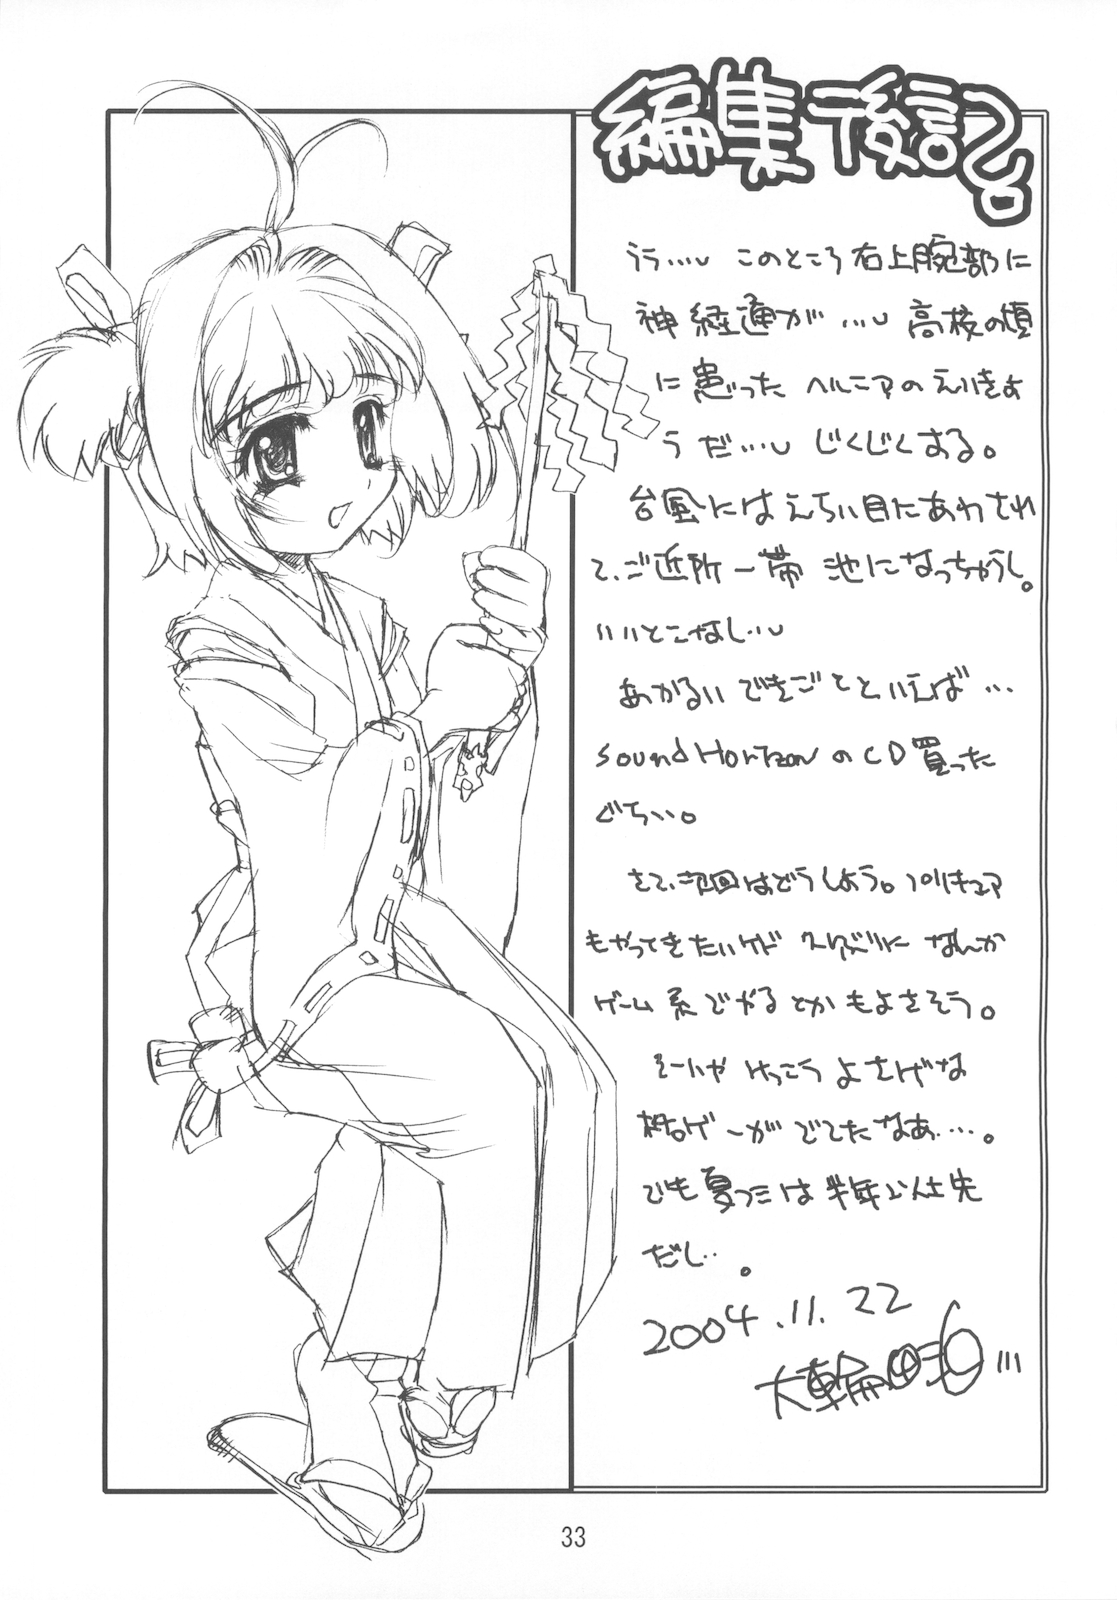 編集後記。
うう…し このところ右上腕部に
神経通が …し 高校の頃
に患った ヘルニアのえいきょ
うだ…し じくじくする。
台風にはえらい目にあわされ
て、ご近所一帯 池になっちゃうし。
いいとこなし…し
あかるいできごとといえば…
Sound HorizonのCD買った
ぐらい。
さて、次回はどうしよう。プリキュア
もやってきたいけど なんか
ゲーム系でやるとかもよさそう。
そーいや けっこう よさげな
格ゲーがでてたなぁ…。
でも夏コミは半年以上先
だし…。
2004.11.22
大輪田
33